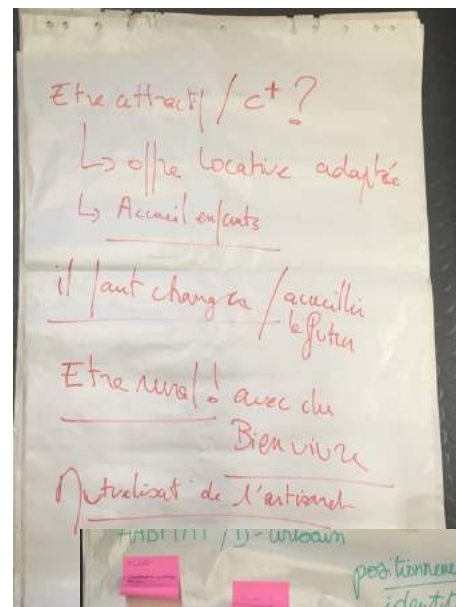 Etre attractif / c+ ?
↳ offre locative adaptée
↳ Accueil enfants
il faut changer / accueillir
le futur
Etre rural ! avec du
Bien vivre
Mutualisat° de l'artisanat
HABITAT / D- urbain